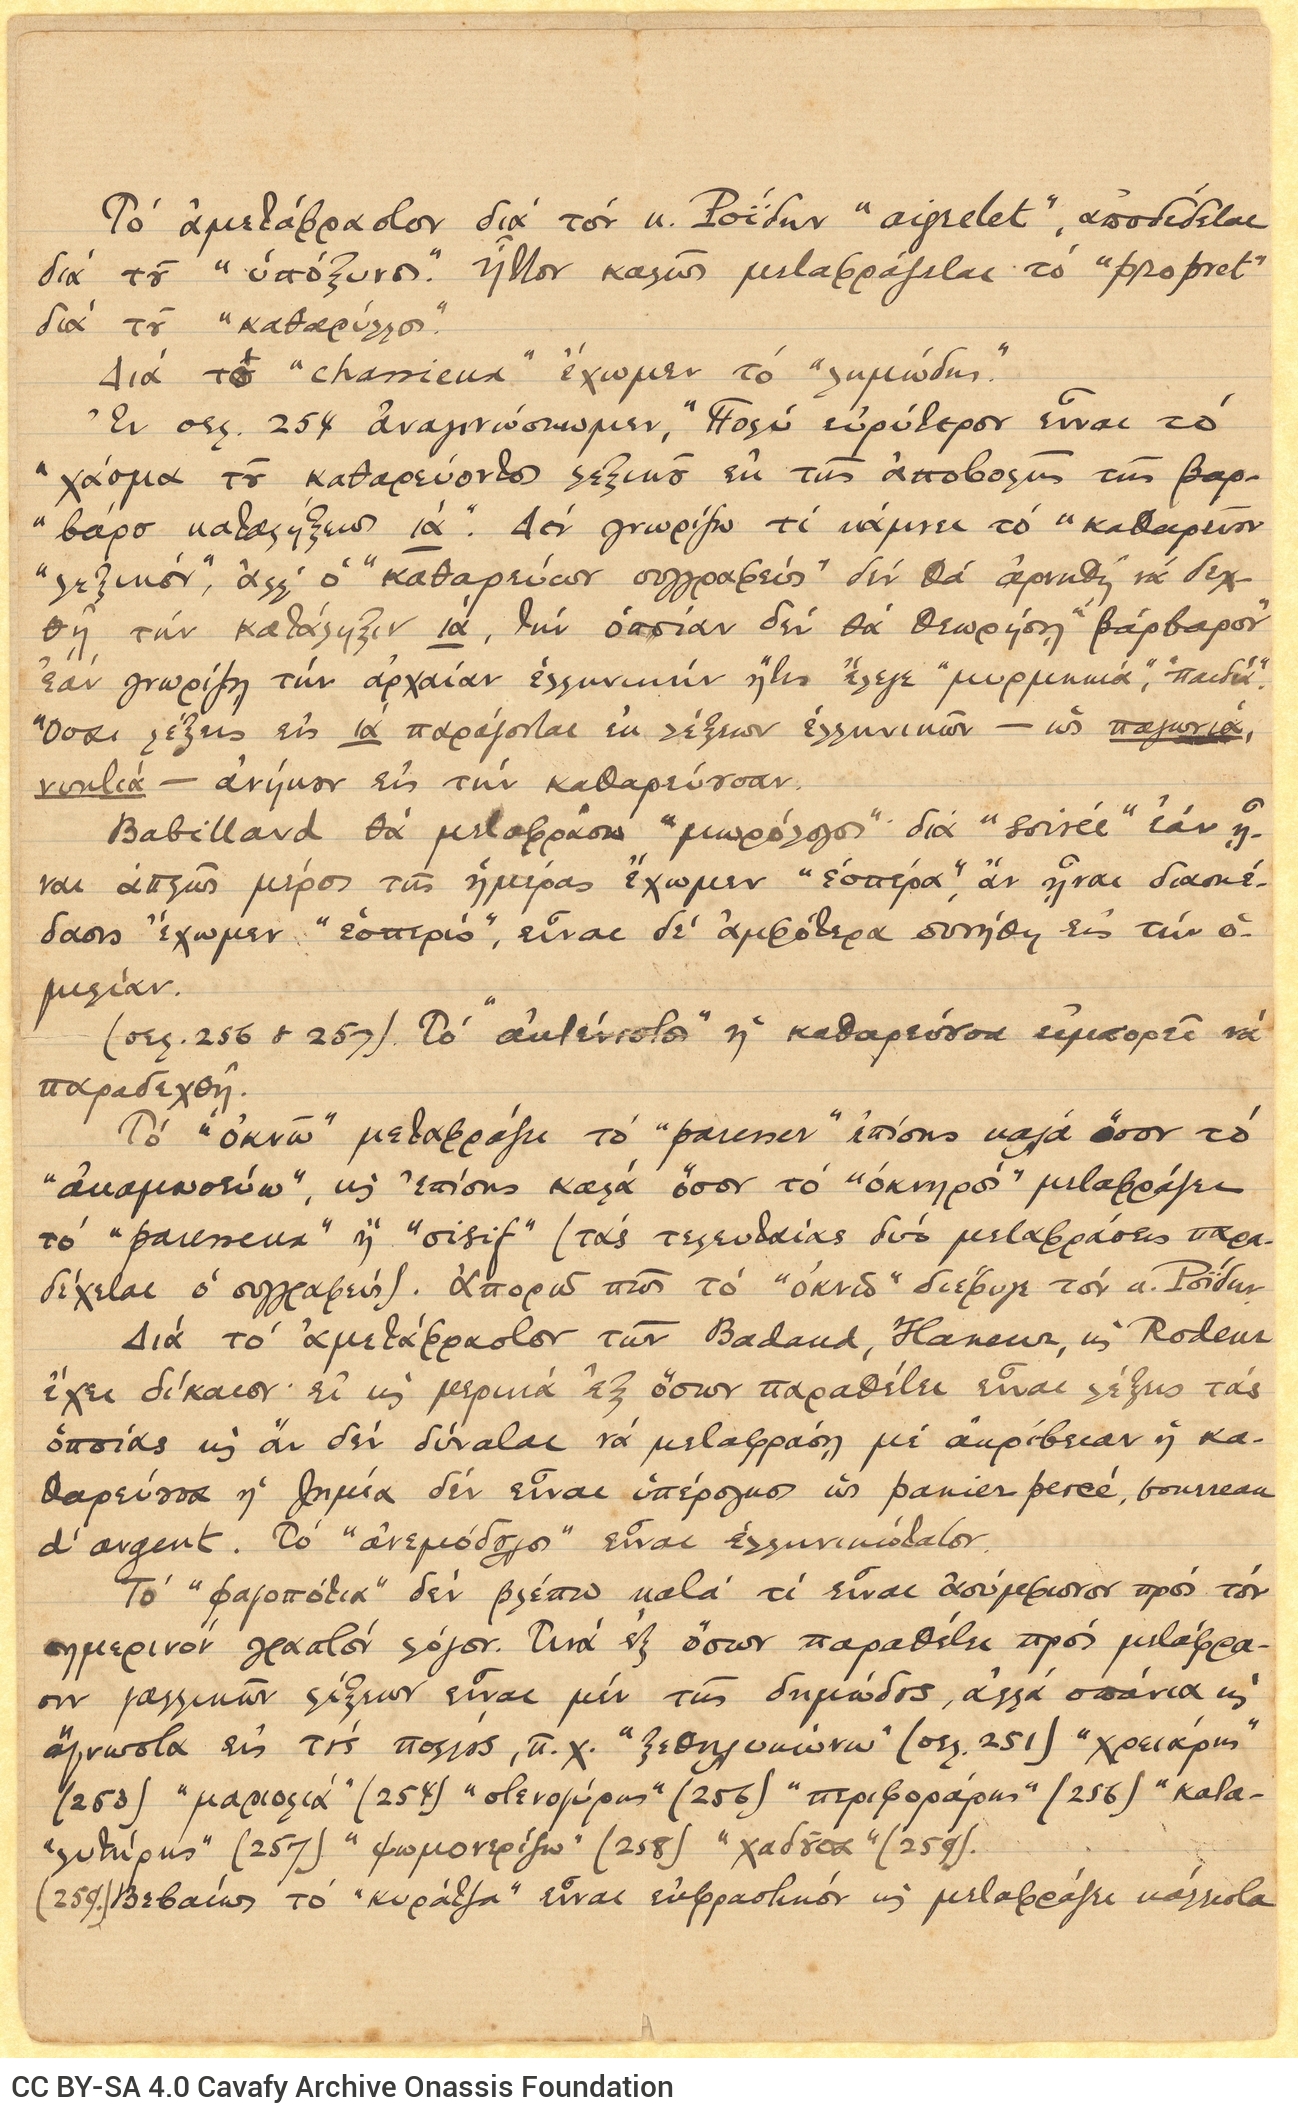 Τό ἀμετάφραστον διά τόν κ. Ροΐδην "aigrelet", ἀποδίδεται
διά τοῦ "ὑπόξυνος". Ἧττον καλῶς μεταφράζεται τό "propret"
διά τοῦ "καθαρύλλος".
Διά τό "chassieux" ἔχωμεν τό "λημώδης".
Ἐν σελ. 254 ἀναγινώσκωμεν, "Πολύ εὐρύτερον εἶναι τό
"χάσμα τοῦ καθαρεύοντος λεξικοῦ ἐκ τῆς ἀποβολῆς τῆς βαρ-
"βάρου καταλήξεως ιά". Δέν γνωρίζω τί κάμνει τό "καθαρεῦον
"λεξικόν", ἀλλ' ὁ "καθαρεύων συγγραφεύς" δέν θά ἀρνηθῇ νά δεχ-
θῇ τήν κατάληξιν ιά, τήν ὁποίαν δέν θά θεωρήσῃ "βάρβαρον"
ἐάν γνωρίζῃ τήν ἀρχαίαν ἑλληνικήν ἥτις ἔλεγε "μυρμηκιά", "παιδιά".
Ὅσαι λέξεις εἰς ιά παράγονται ἐκ λέξεων ἑλληνικῶν — ὡς παγωνιά,
νυκτιά — ἀνήκουν εἰς τήν καθαρεύουσαν.
Babillard θά μεταφράσω "μωρόλογος" διά "soirée" ἐάν ᾖ-
ναι ἁπλῶς μέρος τῆς ἡμέρας ἔχωμεν "ἑσπέρα", ἄν ᾖναι διασκέ-
δασις ἔχωμεν "ἑσπερίς", εἶναι δέ ἀμφότερα συνήθη εἰς τήν ὁ-
μιλίαν.
(σελ. 256 & 257). Τό "ἀκτένιστος" ἡ καθαρεύουσα εἰμπορεῖ νά
παραδεχθῇ.
Τό "ὀκνῶ" μεταφράζει τό "paresser" ἐπίσης καλά ὅσον τό
"ἀκαματεύω", κ ἐπίσης καλά ὅσον τό "ὀκνηρός" μεταφράζει
τό "paresseux" ἤ "oisif" (τάς τελευταίας δύο μεταφράσεις παρα-
δέχεται ὁ συγγραφεύς). Ἀπορῶ πῶς τό "ὀκνῶ" διέφυγε τόν κ. Ροΐδην.
Διά τό ἀμετάφραστον τῶν Badaud, Flaneur, κ Rodeur
ἔχει δίκαιον· εἰ κ μερικά ἐξ ὅσων παραθέτει εἶναι λέξεις τάς
ὁποίας κ ἄν δέν δύναται νά μεταφράσῃ μέ ἀκρίβειαν ἡ κα-
θαρεύουσα ἡ ζημία δέν εἶναι ὑπέρογκος ὡς panier percé, bourreau
d'argent. Τό "ἀνεμόδουλος" εἶναι ἑλληνικώτατον.
Τό "φαγοπότια" δέν βλέπω κατά τί εἶναι ἀσύμφωνον πρός τόν
σημερινόν γραπτόν λόγον. Τινά ἐξ ὅσων παραθέτει πρός μετάφρα-
σιν γαλλικῶν λέξεων εἶναι μέν τῆς δημώδους, ἀλλά σπάνια κ
ἄγνωστα εἰς τούς πολλούς, π.χ. "ξεθηλυκώνω" (σελ. 251) "χρειάρης"
(253) "μαριολιά" (254) "στενογύρης" (256) "περιφοράρης" (256) "κατα-
"λυτήρης" (257) "ψωμονερίζω" (258) "χαδοῦσα" (259).
(259.) Βεβαίως τό "κυράτζα" εἶναι ἐκφραστικόν κ μεταφράζει κάλλιστα
CC BY-SA 4.0 Cavafy Archive Onassis Foundation